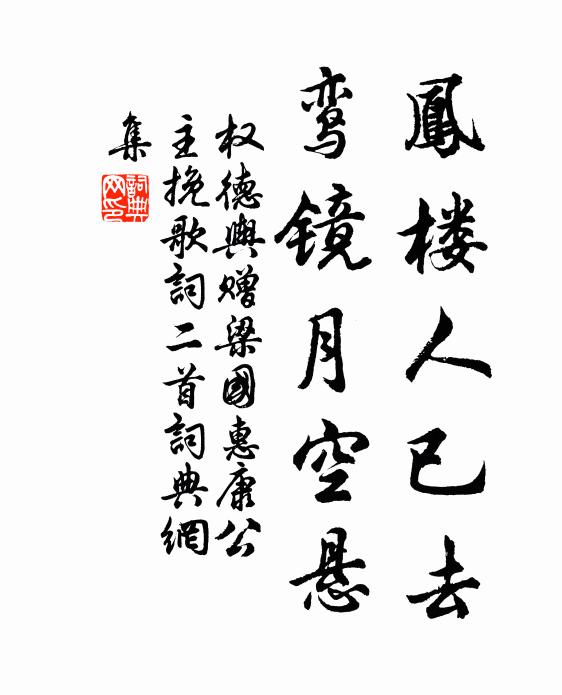 鳳楼人已去
鸾镜月空悬
权德舆赠梁國惠康公
主挽歌詞二首詞典網
集
詞典
网印